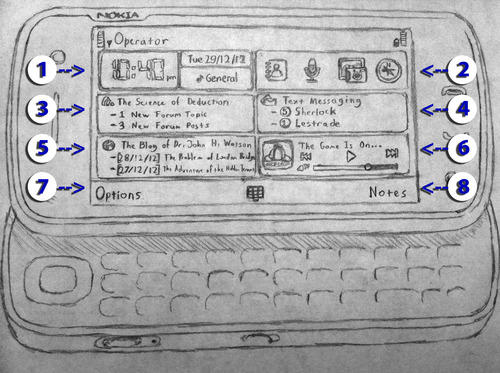 NOKIA
Operator
1
10:40 pm
Tue 29/12/12
General
2
3
The Science of Deduction
- 1 New Forum Topic
- 3 New Forum Posts
4
Text Messaging
- 5 Sherlock
- 1 Lestrade
5
The Blog of Dr. John H. Watson
- [28/12/12] The Problem of London Bridge
- [27/12/12] The Adventure of the
6
The Game Is On...
7
Options
Notes
8